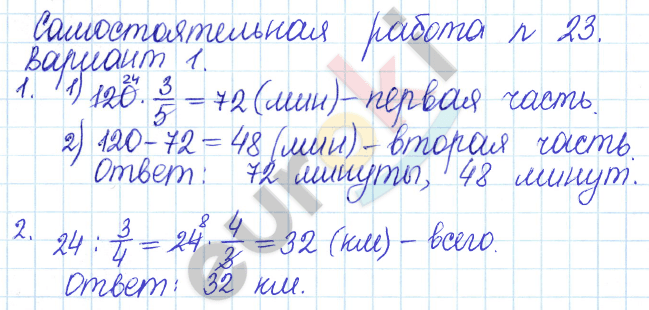 Самостоятельная работа n 23.
Вариант 1.
1. 1) 120²⁴ · 3/5 = 72 (мин) – первая часть.
2) 120 – 72 = 48 (мин) – вторая часть.
Ответ: 72 минуты, 48 минут.
2. 24 : 3/4 = 24⁸ · 4/3 = 32 (км) – всего.
Ответ: 32 км.
euroki